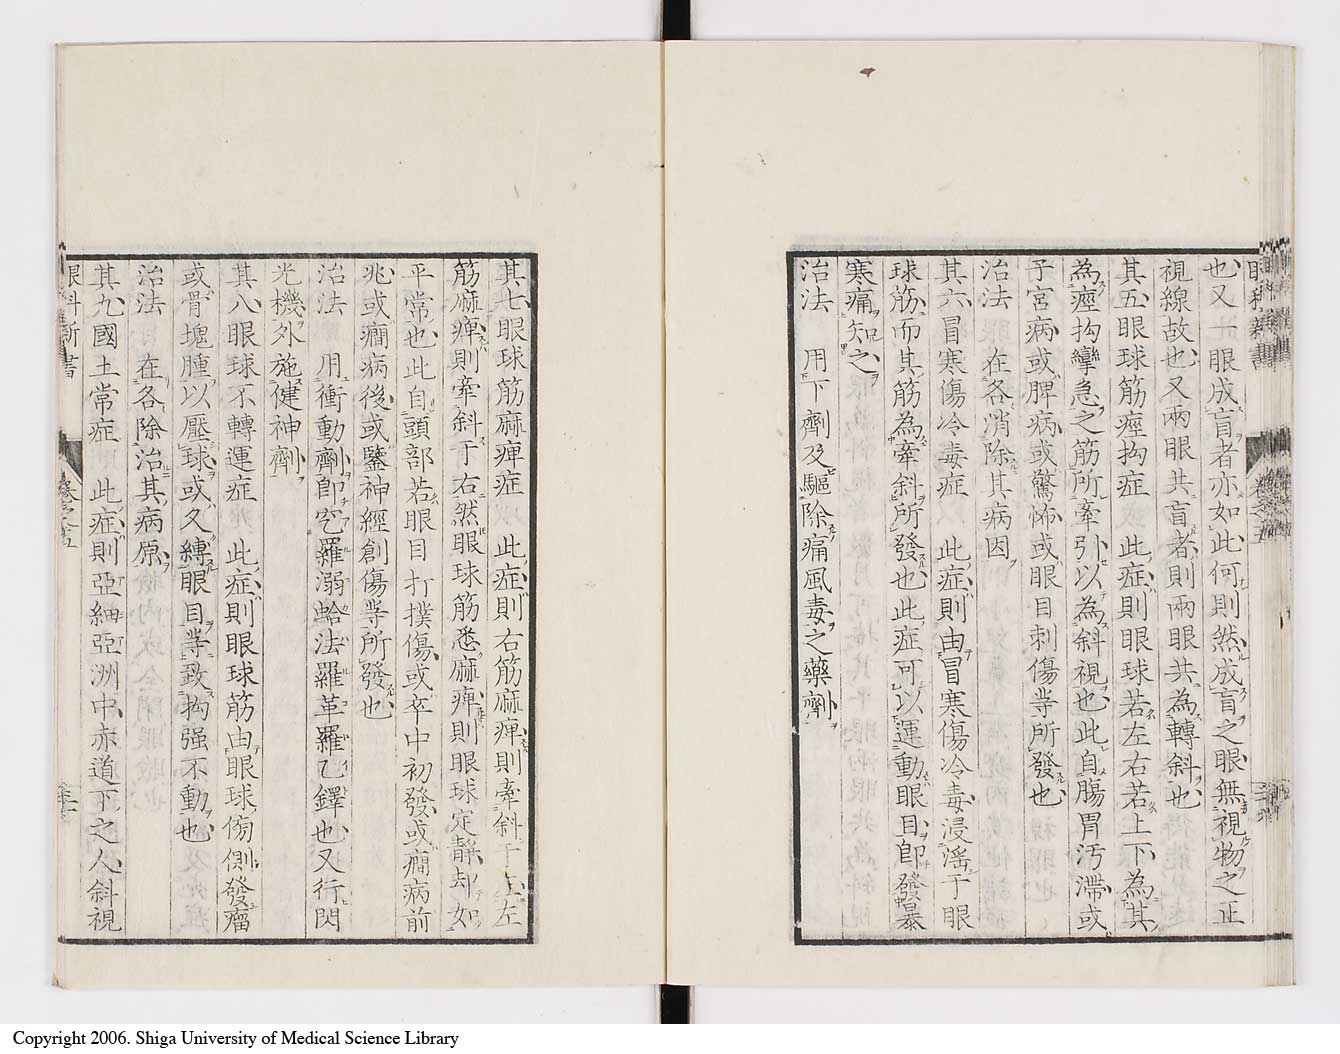 也又一眼成盲者亦如此何則然成盲之眼無視物之正
視線故也又兩眼共盲者則兩眼共為轉斜也
其五眼球筋痙拘症 此症則眼球若左右若上下為其
為痙拘攣急之筋所牽引以為斜視也此自腸胃汚滯或
子宮病或脾病或驚怖或眼目刺傷等所發也
治法 眼 在各消除其病因
其六冒寒傷冷毒症 此症則由冒寒傷冷毒浸淫于眼
球筋而其筋為牽斜所發也此症可以運動眼目即發暴
寒痛知之
治法 用下劑及驅除痛風毒之藥劑
眼科新書 卷之五
其七眼球筋麻痺症 此症則右筋麻痺則牽斜于左左
筋麻痺則牽斜于右然眼球筋悉麻痺則眼球定靜却如
平常也此自頭部若眼目打撲傷或卒中初發或癇病前
兆或癇病後或鑒神經創傷等所發也
治法 用衝動劑即安羅溺蛤法羅革羅乙鐸也又行閃
光機外施健神劑
其八眼球不轉運症 此症則眼球筋由眼球傍側發瘤
或骨塊腫以壓球或久縛眼目等致拘强不動也
治法 在各除治其病原
其九國土常症 此症則亞細亞洲中赤道下之人斜視
眼科新書 卷之五
Copyright 2006. Shiga University of Medical Science Library